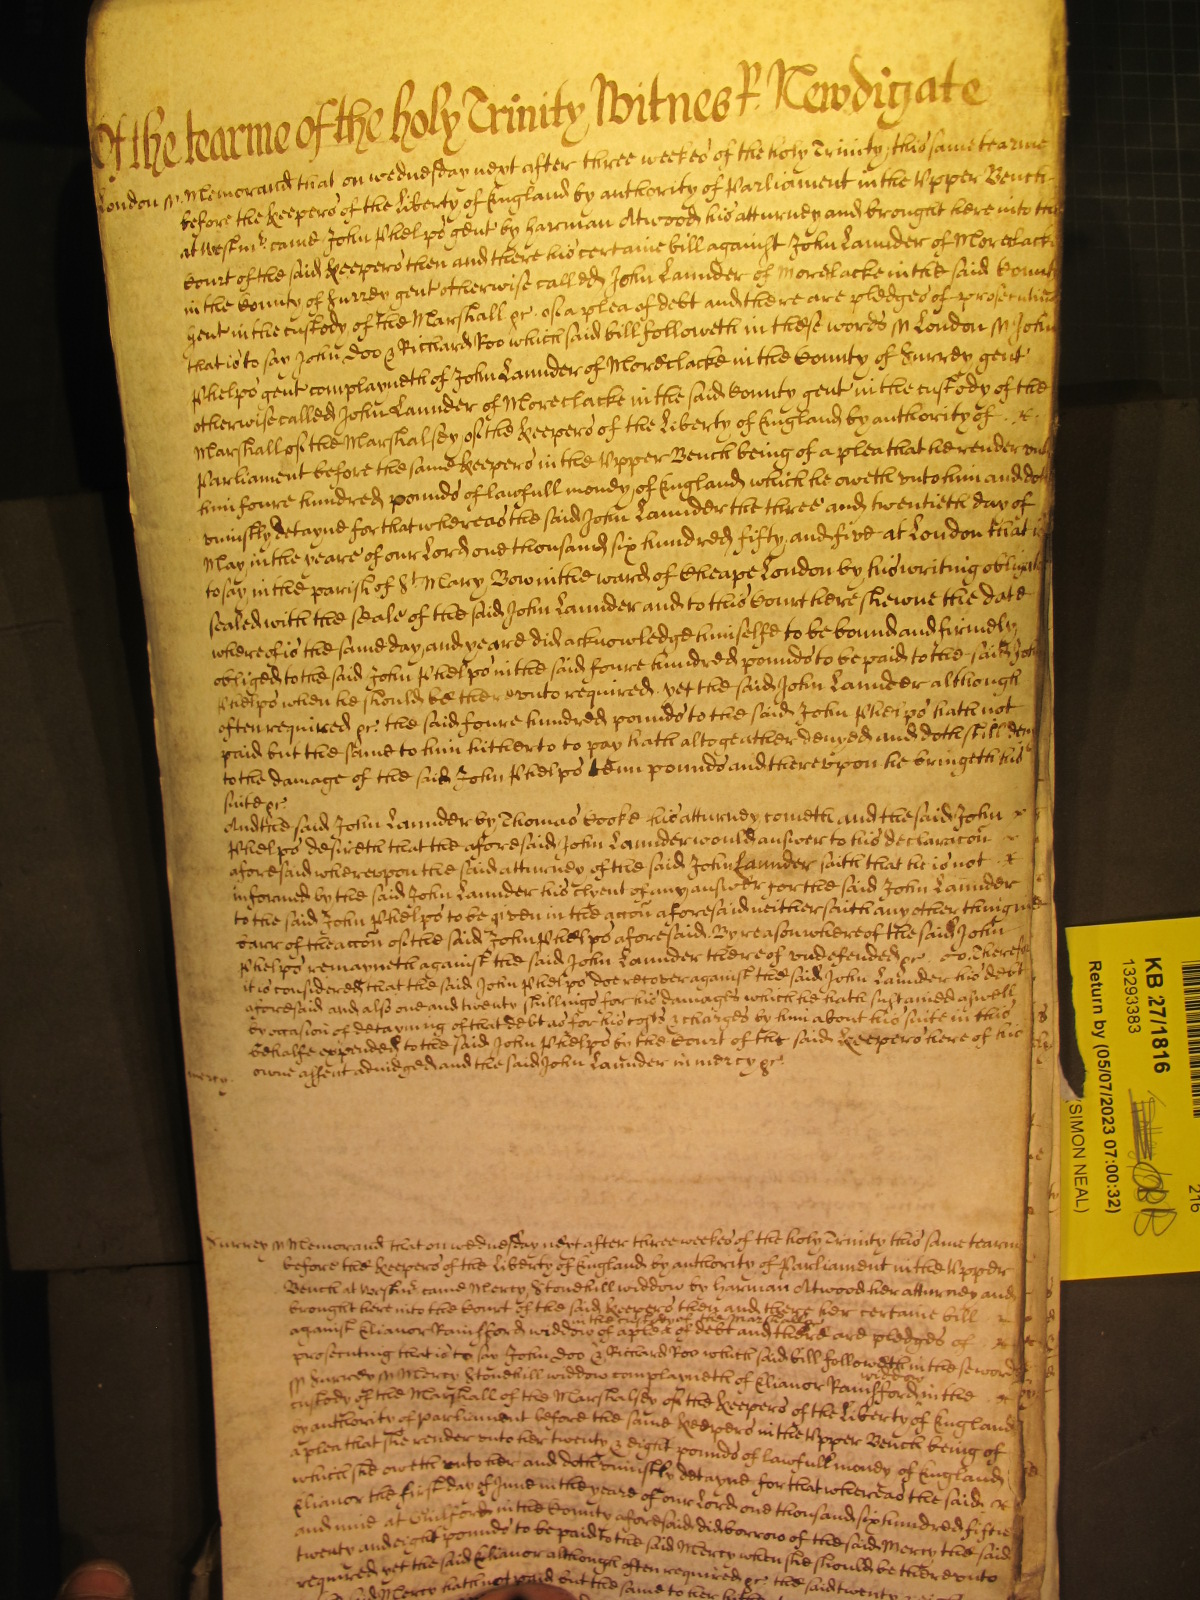 Of the tearme of the holy Trinity Witnes P. Newdigate
London ss Memorand that on wednesday next after three weekes of the holy Trinity this same tearme
before the Keepers of the Liberty of England by authority of Parliament in the Upper Bench
at Westmr. came John Phelps gent by Harman Atwood his atturney and brought here into the
Court of the said Keepers then and there his certaine bill against John Launder of Moreclacke
in the County of Surrey gent otherwise called John Launder of Moreclacke in the said County
gent in the custody of the Marshall &c. of a plea of debt and there are pledges of prosecuting
that is to say John Doo & Richard Roo which said bill followeth in these words ss London ss John
Phelps gent complayneth of John Launder of Moreclacke in the County of Surrey gent
otherwise called John Launder of Moreclacke in the said County gent in the custody of the
Marshall of the Marshalsey of the Keepers of the Liberty of England by authority of
Parliament before the same Keepers in the Upper Bench being of a plea that he render unto
him foure hundred pounds of lawfull money of England which he oweth unto him and doth
uniustly detayne for that whereas the said John Launder the three and twentieth day of
May in the yeare of our Lord one thousand six hundred fifty and five at London that is
to say in the parish of St. Mary Bow in the ward of Cheape London by his writing obligat
sealed with the seale of the said John Launder and to this Court here shewne the date
whereof is the same day and yeare did acknowledge himselfe to be bound and firmely
obliged to the said John Phelps in the said foure hundred pounds to be paid to the said John
Phelps when he should be thereunto required yet the said John Launder although
often required &c. the said foure hundred pounds to the said John Phelps hath not
paid but the same to him hitherto to pay hath altogeather denyed and doth still deny
to the damage of the said John Phelps tenn pounds and thereupon he bringeth this
suite &c.
And the said John Launder by Thomas Cooke his atturney cometh and the said John
Phelps desireth that the aforesaid John Launder would answer to his declaracon
aforesaid whereupon the said atturney of the said John Launder saith that he is not
informed by the said John Launder his clyent of any answer for the said John Launder
to the said John Phelps to be given in the accon aforesaid neither saith any other thing in
barr of the accon of the said John Phelps aforesaid. By reason whereof the said John
Phelps remayneth against the said John Launder thereof undefended &c. So. Therefore
it is considered that the said John Phelps doe recover against the said John Launder his debt
aforesaid and also one and twenty shillings for his damages which he hath sustained aswell
by occasion of detayning of that debt as for his costs & charges by him about his suite in this
behalfe expended to the said John Phelps by the Court of the said Keepers here of his
mercy. owne assent adiudged and the said John Launder in mercy &c.
Surrey ss Memorand that on wednesday next after three weekes of the holy Trinity this same tearme
before the Keepers of the Liberty of England by authority of Parliament in the Upper
Bench at Westmr. came Mercy Stonehill widdow by Harman Atwood her atturney and
brought here into the Court of the said Keepers then and there her certaine bill
in the custody of the Marshall &c
against Elianor Rainsford widdow of a plea of debt and there are pledges of
prosecuting that is to say John Doo & Richard Roo which said bill followeth in these words
widdow
ss Surrey ss Mercy Stonehill widdow complayneth of Elianor Rainsford in the
custody of the Marshall of the Marshalsey of the Keepers of the Liberty of England
by authority of parliament before the same Keepers in the Upper Bench being of
a plea that she render unto her twenty & eight pounds of lawfull money of England
which she oweth unto her and doth uniustly detayne for that whereas the said
Elianor the first day of June in the yeare of our Lord one thousand six hundred fiftie
and nine at Guilford in the County aforesaid did borrow of the said Mercy the said
twenty and eight pounds to be paid to the said Mercy when she should be thereunto
required yet the said Elianor although often required &c. the said twenty
said Mercy hath not paid but the same to her
KB 27/1816
13293383
Return by (05/07/2023 07:00:32)
(SIMON NEAL)
216